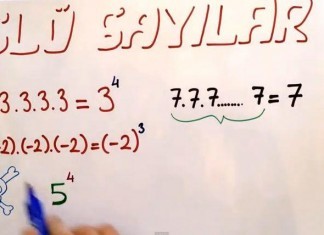 LÜ SAYILAR
3.3.3.3 = 3⁴ 7.7.7........ 7 = 7
2).(-2).(-2) = (-2)³
5⁴